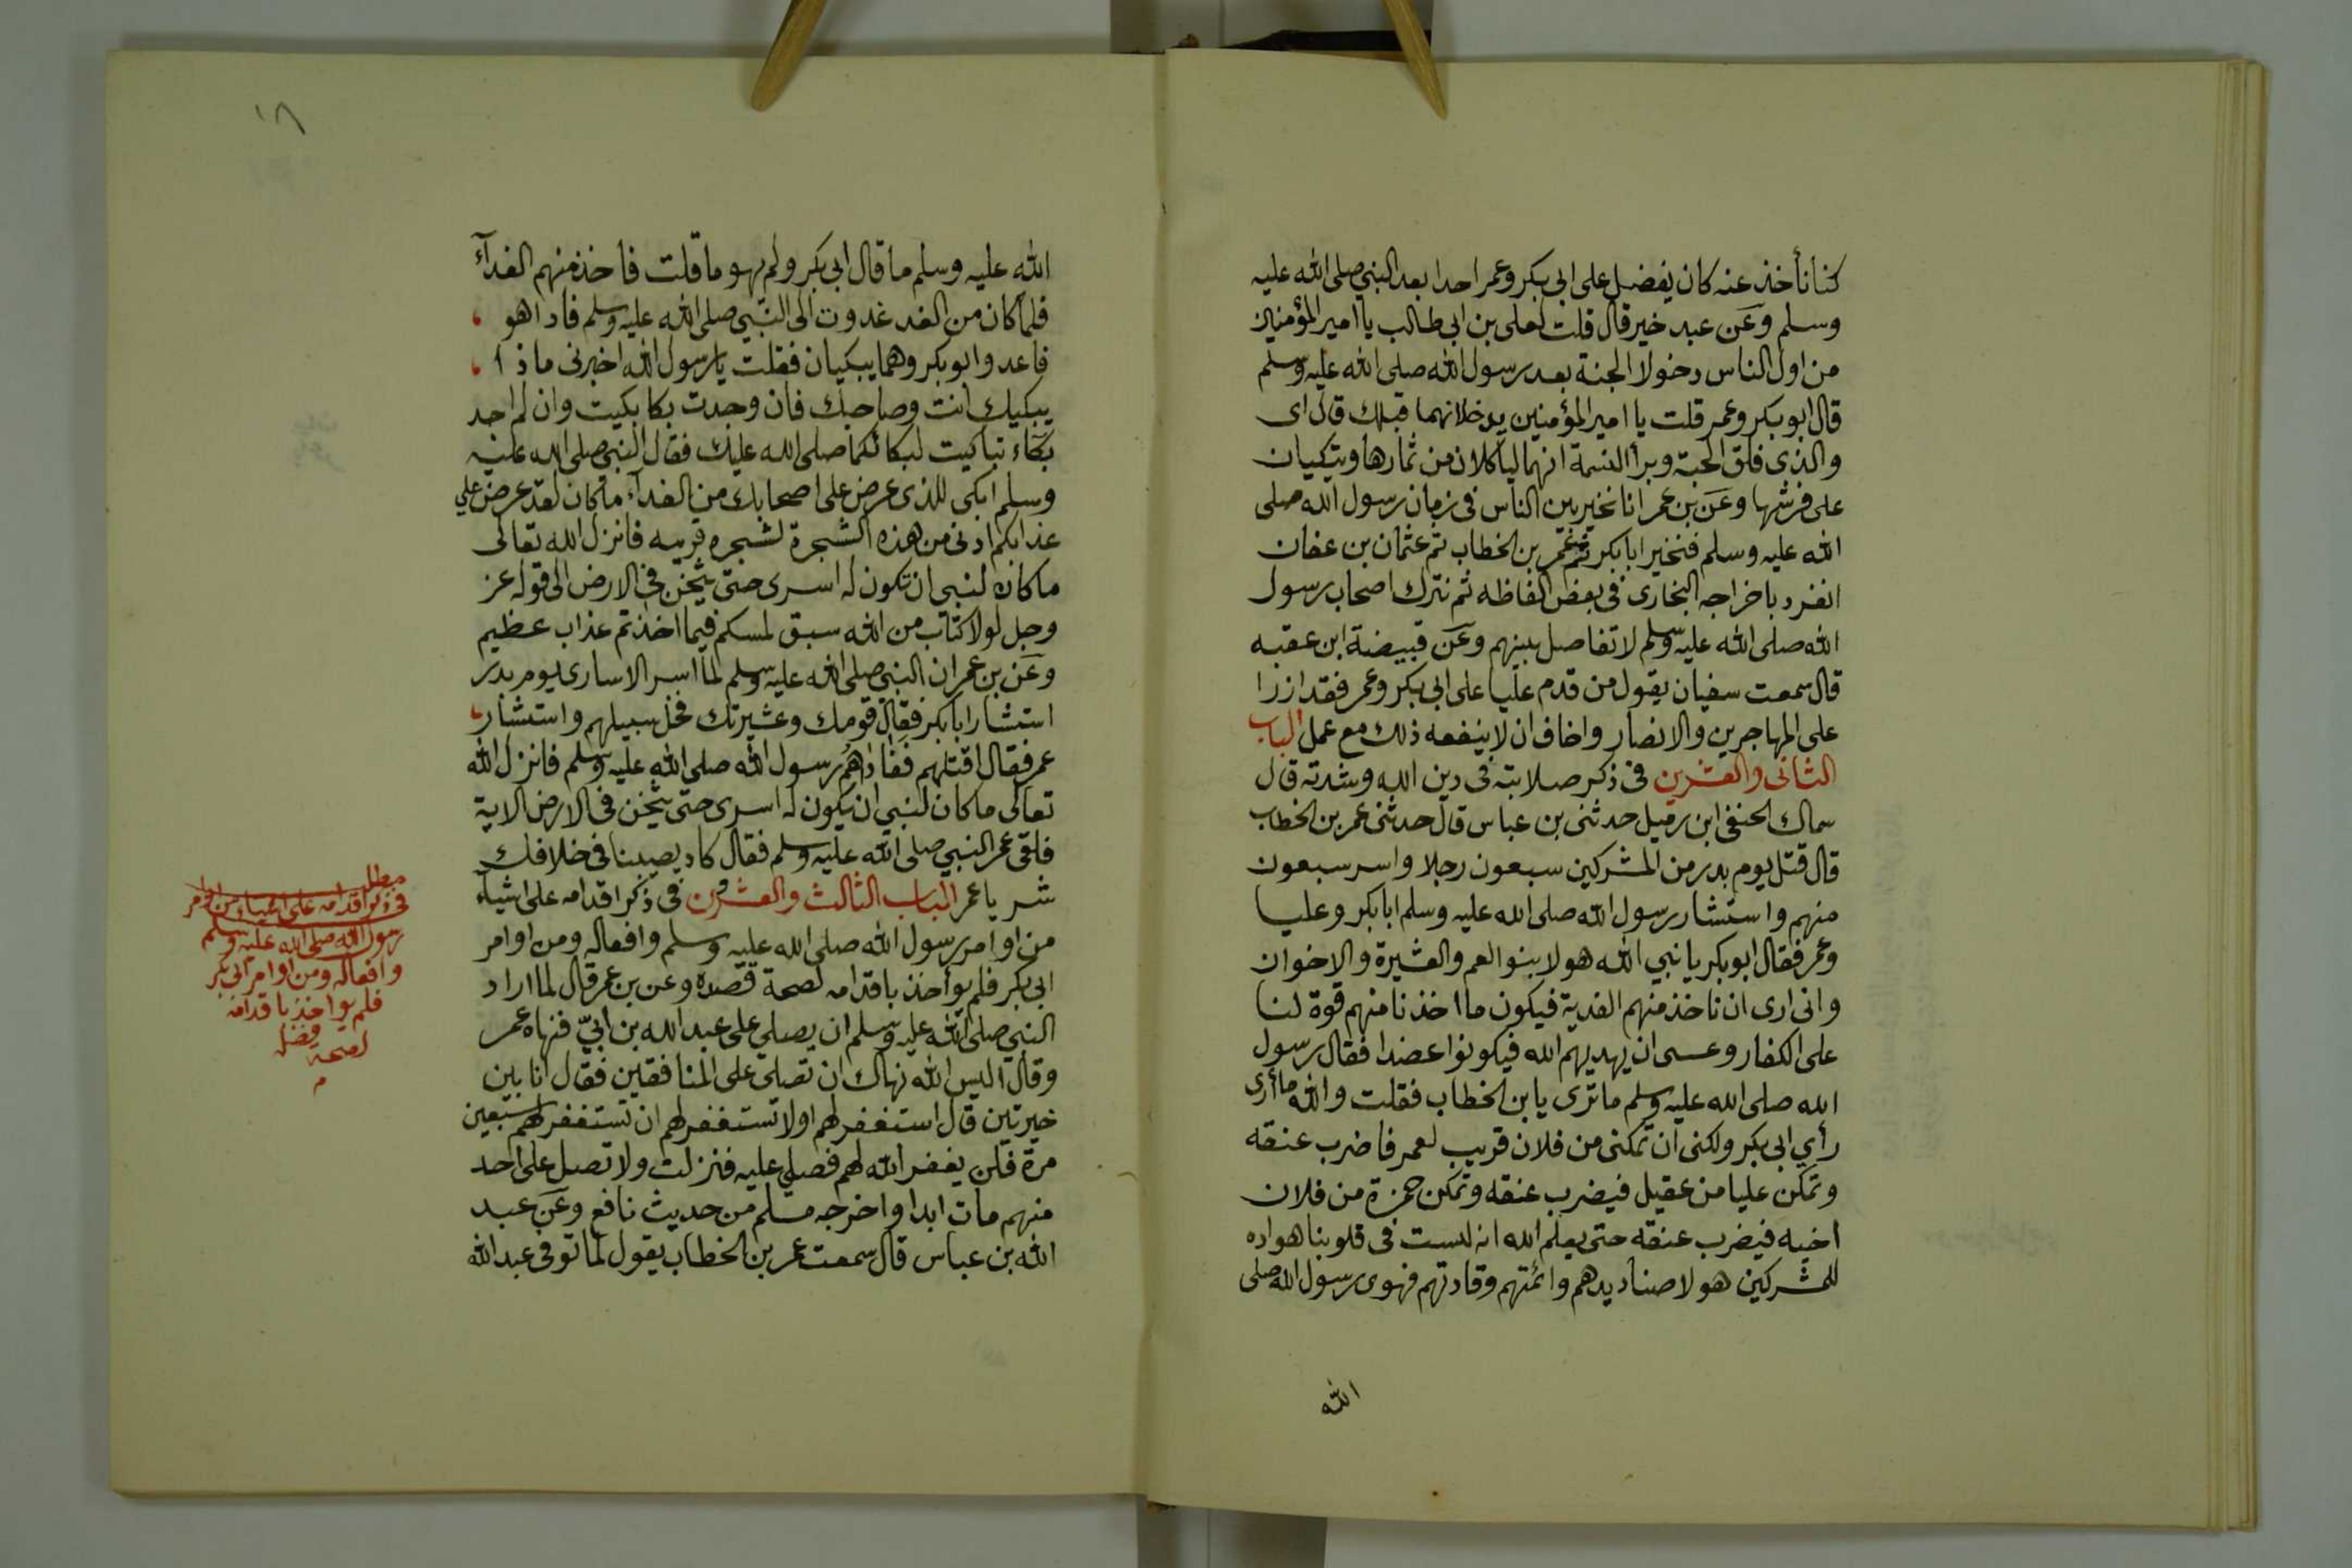 كنا نأخذ عنه كان يفضل على ابى بكر وعمر احدا بعد النبي صلى الله عليه
وسلم وعن عبد خير قال قلت لعلى بن ابى طالب يا امير المؤمنين
من اول الناس دخولا الجنة بعد رسول الله صلى الله عليه وسلم
قال ابو بكر وعمر قلت يا امير المؤمنين يدخلانهما قبلك قال اى
والذى فلق الحبة وبرأ النسمة انهما لياكلان من ثمارها ويتكيان
على فرشها وعن بن عمر انا نخير بين الناس فى زمان رسول الله صلى
الله عليه وسلم فنخير ابا بكر ثم عمر بن الخطاب ثم عثمان بن عفان
انفرد باخراجه البخارى فى بعض الفاظه ثم نترك اصحاب رسول
الله صلى الله عليه وسلم لا تفاصل بينهم وعن قبيضة ابن عقبه
قال سمعت سفيان يقول من قدم عليا على ابى بكر وعمر فقد ازرا
على المهاجرين والانصار واخاف ان لا ينفعه ذلك مع عمل الباب
الثانى والعشرين فى ذكر صلابته فى دين الله وشدته قال
سماك الحنفى ابن رميل حدثنى بن عباس قال حدثنى عمر بن الخطاب
قال قتل يوم بدر من المشركين سبعون رجلا واسر سبعون
منهم واستشار رسول الله صلى الله عليه وسلم ابا بكر وعليا
وعمر فقال ابو بكر يا نبي الله هولا بنو العم والعشيرة والاخوان
وانى ارى ان ناخذ منهم الفدية فيكون ما اخذنا منهم قوة لنا
على الكفار وعسى ان يهديهم الله فيكونوا عضدا فقال رسول
الله صلى الله عليه وسلم ما ترى يا بن الخطاب فقلت والله ما أرى
رأي ابى بكر ولكنى ان تمكنى من فلان قريب لعمر فاضرب عنقه
وتمكن عليا من عقيل فيضرب عنقه وتمكن حمزة من فلان
اخيه فيضرب عنقه حتى يعلم الله انه لست فى قلوبنا هواده
للمشركين هولا صناديدهم وائمتهم وقادتهم فهوى رسول الله صلى
الله
١٨
الله عليه وسلم ما قال ابى بكر ولم يهو ما قلت فاخذ منهم الفدآء
فلما كان من الغد غدوت الى النبي صلى الله عليه وسلم فاذا هو
قاعد وابو بكر وهما يبكيان فقلت يا رسول الله اخبرنى ماذا
يبكيك انت وصاحبك فان وجدت بكا بكيت وان لم اجد
بكآء تباكيت لبكائكما صلى الله عليك فقال النبي صلى الله عليه
وسلم ابكى للذى عرض على اصحابك من الفدآء ما كان لقد عرض علي
عذابكم ادنى من هذه الشجرة لشجره قريبه فانزل الله تعالى
ما كان لنبي ان تكون له اسرى حتى يثخن فى الارض الى قوله عز
وجل لولا كتاب من الله سبق لمسكم فيما اخذتم عذاب عظيم
وعن بن عمر ان النبي صلى الله عليه وسلم لما اسر الاسارى يوم بدر
استشار ابا بكر فقال قومك وعشيرتك فخل سبيلهم واستشار
عمر فقال اقتلهم ففاداهم رسول الله صلى الله عليه وسلم فانزل الله
تعالى ما كان لنبي ان يكون له اسرى حتى يثخن فى الارض الاية
فلقى عمر النبي صلى الله عليه وسلم فقال كاد يصيبنا فى خلافك
شر يا عمر الباب الثالث والعشرون فى ذكر اقدامه على اشيآء
من اوامر رسول الله صلى الله عليه وسلم وافعاله ومن اوامر
ابى بكر فلم يوأخذ باقدامه لصحة قصده وعن بن عمر قال لما اراد
النبي صلى الله عليه وسلم ان يصلي على عبد الله بن ابيّ فنهاه عمر
وقال اليس الله نهاك ان تصلى على المنافقين فقال انا بين
خيرتين قال استغفر لهم اولا تستغفر لهم ان تستغفر لهم سبعين
مرة فلن يغفر الله لهم فصلي عليه فنزلت ولا تصل على احد
منهم مات ابدا واخرجه مسلم من حديث نافع وعن عبد
الله بن عباس قال سمعت عمر بن الخطاب يقول لما توفى عبد الله
مطلب
فى ذكر اقدامه على اشياء من اوامر
رسول الله صلى الله عليه وسلم
وافعاله ومن اوامر ابى بكر
فلم يواخذ باقدامه
لصحة
م